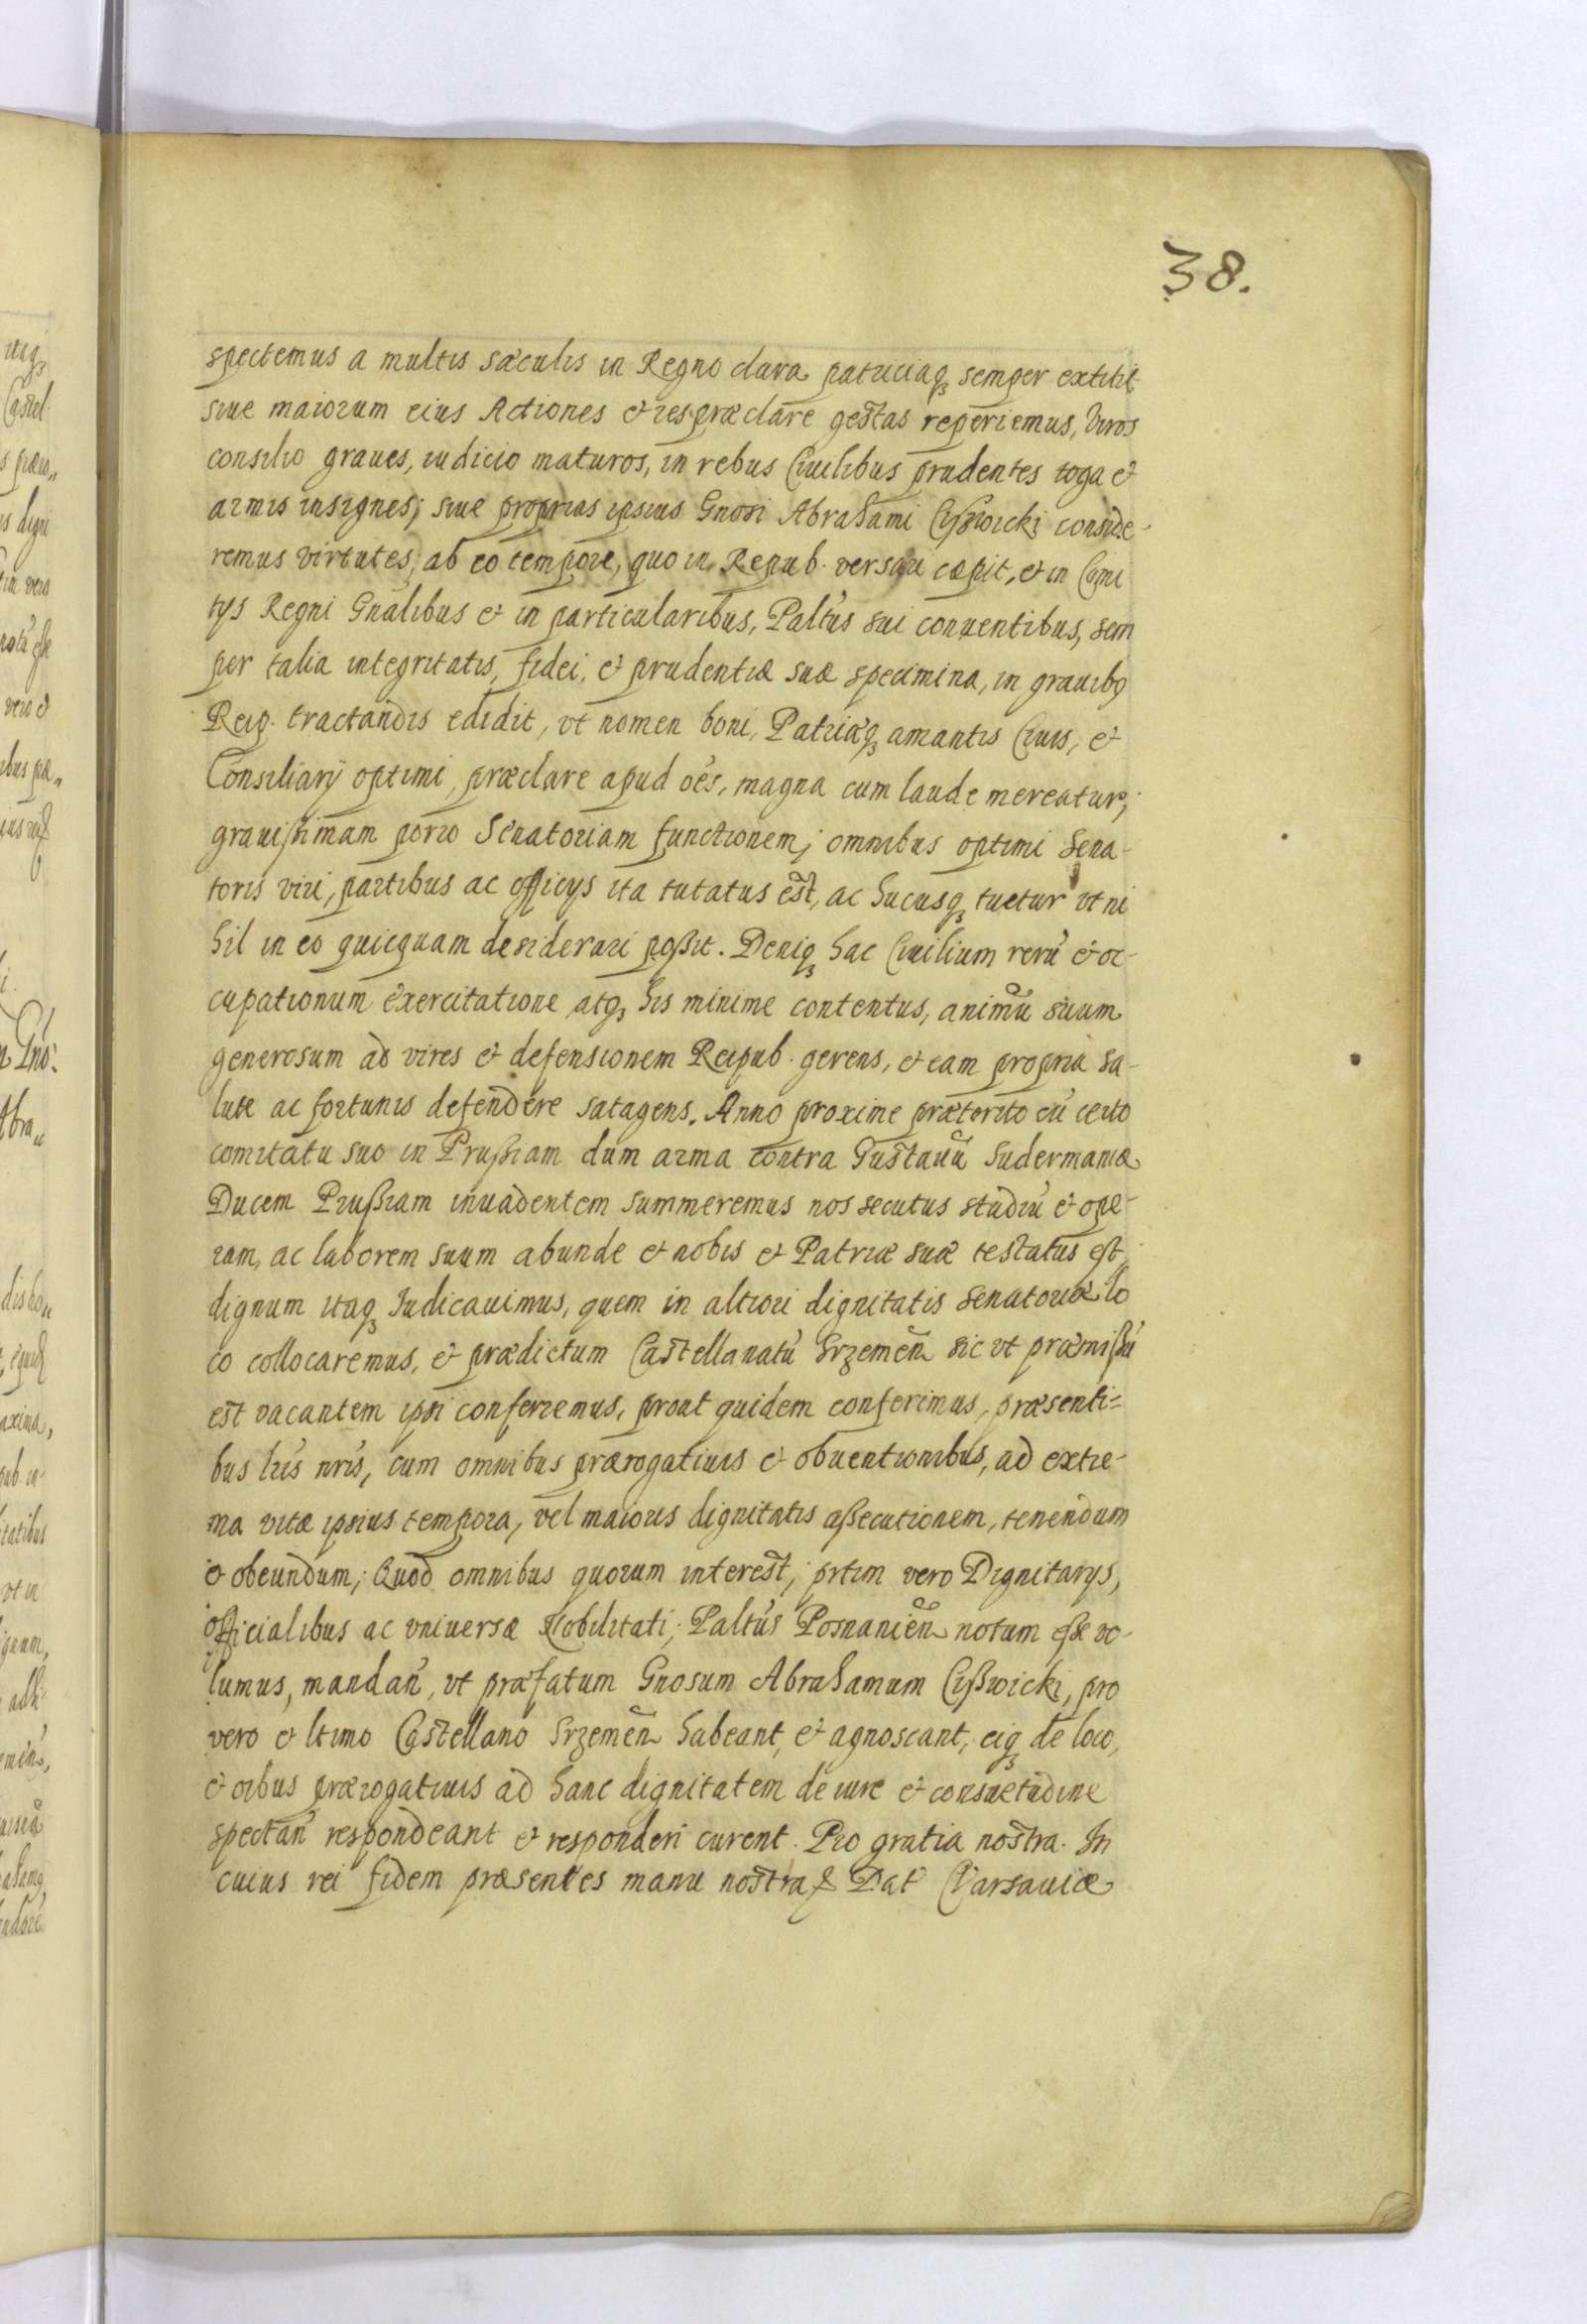 38.
spectemus a multis sæculis in Regno clara patriciaq₃ semper extitit
siue maiorum eius Actiones et res præclare gestas reperiemus, Viros
consilio graues, iudicio maturos, in rebus Ciuilibus prudentes toga et
armis insignes; siue proprias ipsius Gnosi Abrahami Cißwicki conside-
remus virtutes, ab eo tempore, quo in Repub. versari cæpit, et in Comi
tys Regni Gnalibus et in particularibus, Paltus sui conuentibus, sem
per talia integritatis, fidei, et prudentiæ suæ specimina, in grauibq
Reip. tractandis edidit, vt nomen boni, Patriæq₃ amantis Ciuis, et
Consiliarij optimi, præclare apud oēs, magna cum laude mereatur,
grauißimam porro Senatoriam functionem, omnibus optimi Sena-
toris viri, partibus ac officys ita tutatus est, ac hucusq₃ tuetur vt ni
hil in eo quicquam desiderari poßit. Deniq₃ hac Ciuilium rerū et oc-
cupationum exercitatione atq₃ his minime contentus, animū suum
generosum ad vires et defensionem Reipub. gerens, et eam propria sa-
lute ac fortunis defendere satagens. Anno proxime præterito cū certo
comitatu suo in Prußiam dum arma contra Gustauū Sudermaniæ
Ducem Prußiam inuadentem summeremus nos secutus studiū et ope-
ram, ac laborem suum abunde et nobis et Patriæ suæ testatus est,
dignum itaq₃ Iudicauimus, quem in altiori dignitatis senatoriæ lo
co collocaremus, et prædictum Castellanatū Srzemeñ sic vt præmißū
est vacantem ipsi conferremus, prout quidem conferimus, præsenti=
bus lris nris, cum omnibus prærogatiuis et obuentionibus, ad extre-
ma vitæ ipsius tempora, vel maioris dignitatis aßecutionem, tenendum
et obeundum; Quod omnibus quorum interest, prtim vero Dignitarys,
officialibus ac vniuersæ Nobilitati, Paltus Posnanieñ notum eße vo-
lumus, mandañ, vt præfatum Gnosum Abrahamum Cißwicki, pro
vero et ltimo Castellano Srzemeñ habeant, et agnoscant, eiq₃ de loco,
et oibus prærogatiuis ad hanc dignitatem de iure et consuetudine
spectañ respondeant et responderi curent. Pro gratia nostra. In
cuius rei fidem præsentes manu nostra Dat Varsauiæ